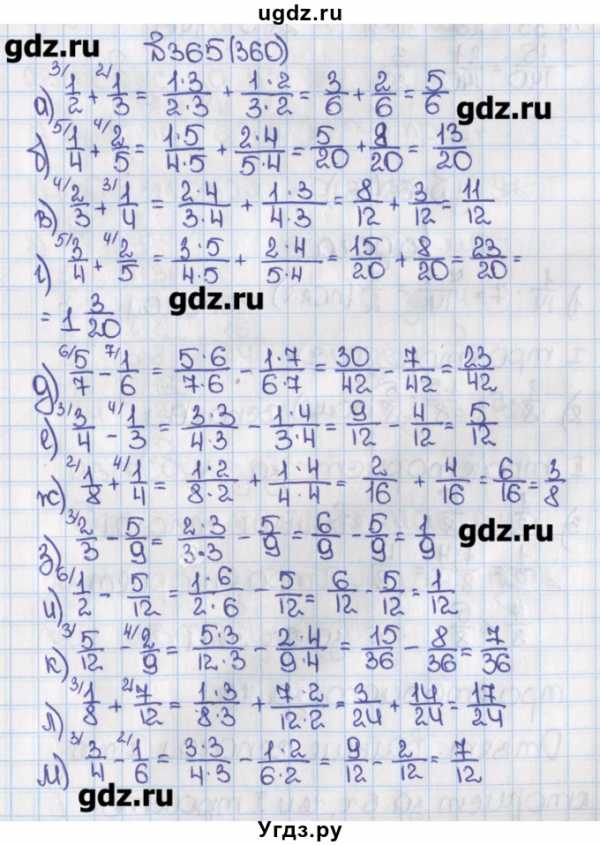 ugdz.ru
gdz.ru №365(360)
а) 3/ 1/2 + 2/ 1/3 = 1·3/2·3 + 1·2/3·2 = 3/6 + 2/6 = 5/6
gdz.ru
б) 5/ 1/4 + 4/ 2/5 = 1·5/4·5 + 2·4/5·4 = 5/20 + 8/20 = 13/20
в) 4/ 2/3 + 3/ 1/4 = 2·4/3·4 + 1·3/4·3 = 8/12 + 3/12 = 11/12
г) 5/ 3/4 + 4/ 2/5 = 3·5/4·5 + 2·4/5·4 = 15/20 + 8/20 = 23/20 =
= 1 3/20 gdz.ru
д) 6/ 5/7 - 7/ 1/6 = 5·6/7·6 - 1·7/6·7 = 30/42 - 7/42 = 23/42
е) 3/ 3/4 - 4/ 1/3 = 3·3/4·3 - 1·4/3·4 = 9/12 - 4/12 = 5/12
ж) 2/ 1/8 + 4/ 1/4 = 1·2/8·2 + 1·4/4·4 = 2/16 + 4/16 = 6/16 = 3/8
з) 3/ 2/3 - 5/9 = 2·3/3·3 - 5/9 = 6/9 - 5/9 = 1/9
gdz.ru
и) 6/ 1/2 - 5/12 = 1·6/2·6 - 5/12 = 6/12 - 5/12 = 1/12
к) 3/ 5/12 - 4/ 2/9 = 5·3/12·3 - 2·4/9·4 = 15/36 - 8/36 = 7/36
л) 3/ 1/8 + 2/ 7/12 = 1·3/8·3 + 7·2/12·2 = 3/24 + 14/24 = 17/24
м) 3/ 3/4 - 2/ 1/6 = 3·3/4·3 - 1·2/6·2 = 9/12 - 2/12 = 7/12
gdz.ru
Угдз.ру